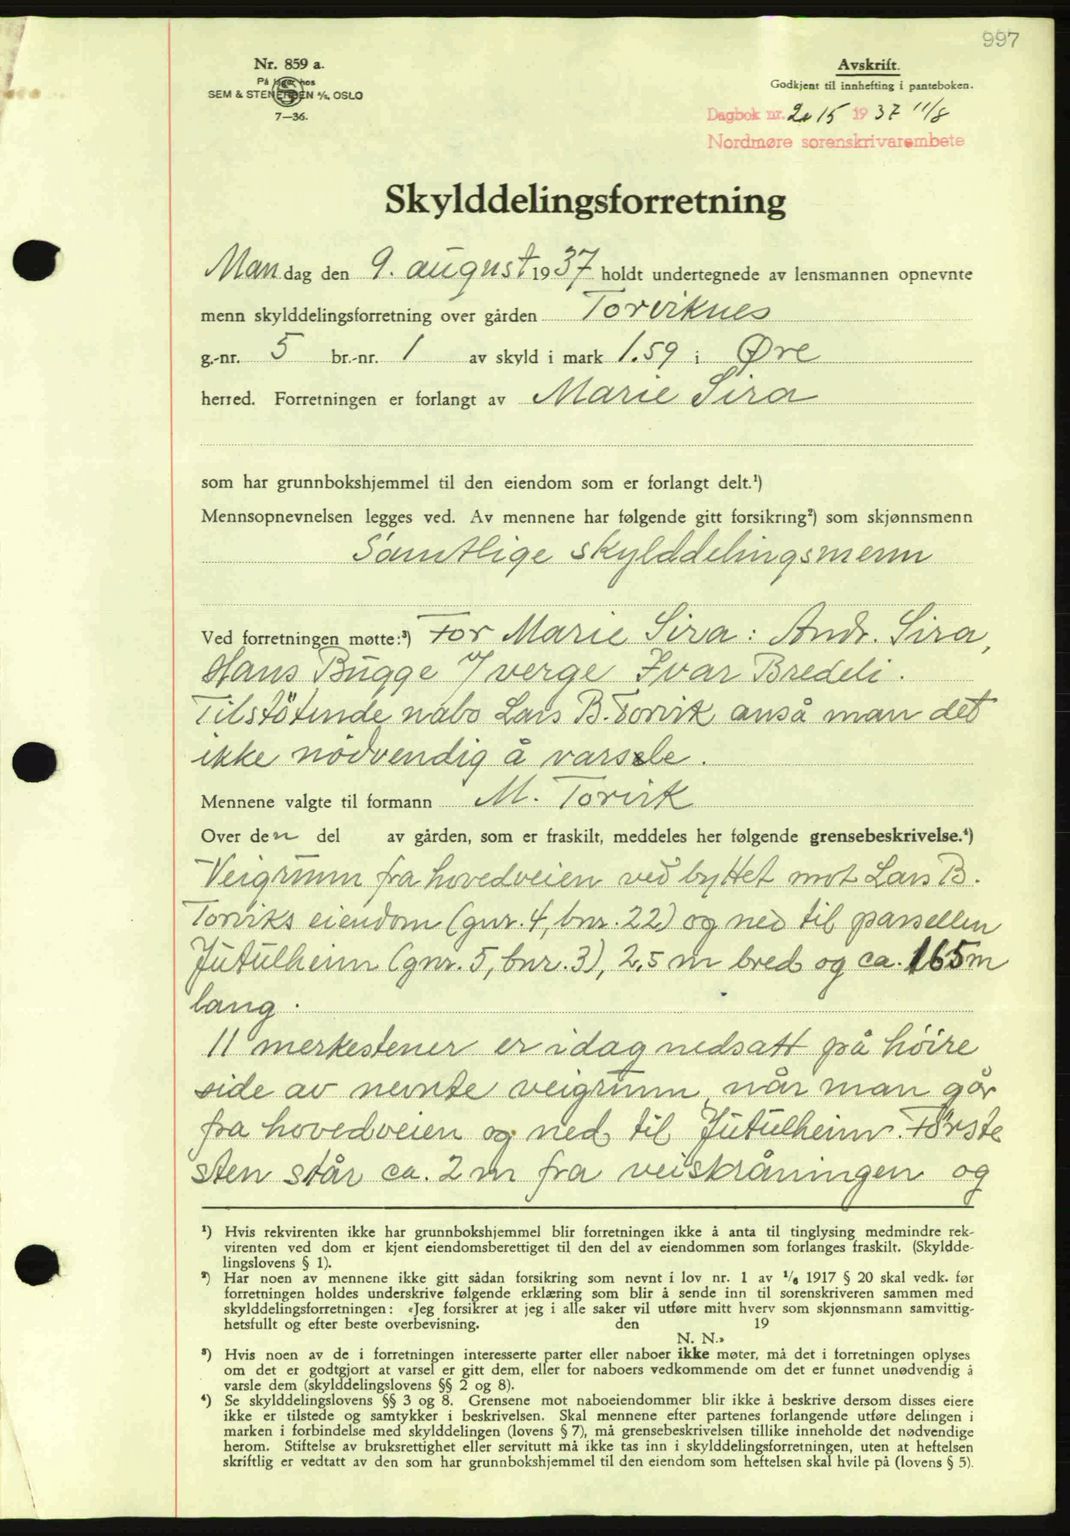 997
Nr. 859 a.
På lager hos
SEM & STENERSEN A/S, OSLO
7—36.
Avskrift.
Godkjent til innhefting i panteboken.
Dagbok nr. 2015 1937 11/8
Nordmøre sorenskrivarembete
Skylddelingsforretning
Mandag den 9. august 1937 holdt undertegnede av lensmannen opnevnte
menn skylddelingsforretning over gården Torviknes
g.-nr. 5 br.-nr. 1 av skyld i mark 1.59 i Øre
herred. Forretningen er forlangt av Marie Sira
som har grunnbokshjemmel til den eiendom som er forlangt delt.¹)
Mennsopnevnelsen legges ved. Av mennene har følgende gitt forsikring²) som skjønnsmenn
Samtlige skylddelingsmenn
Ved forretningen møtte:³) For Marie Sira: Andr. Sira,
Hans Bugge / verge Ivar Bredeli.
Tilstötende nabo Lars B. Torvik anså man det
ikke nödvendig å varsle.
Mennene valgte til formann M. Torvik
Over den del av gården, som er fraskilt, meddeles her følgende grensebeskrivelse.⁴)
Veigrunn fra hovedveien ved byttet mot Lars B.
Torviks eiendom (gnr. 4, bnr. 22) og ned til parsellen
Jutulheim (gnr. 5, bnr. 3), 2,5 m bred og ca. 165 m
lang.
11 merkestener er idag nedsatt på höire
side av nevnte veigrunn, når man går
fra hovedveien og ned til Jutulheim. Förste
sten står ca. 2 m fra veiskråningen og
¹) Hvis rekvirenten ikke har grunnbokshjemmel blir forretningen ikke å anta til tinglysing medmindre rek-
virenten ved dom er kjent eiendomsberettiget til den del av eiendommen som forlanges fraskilt. (Skyldde-
lingslovens § 1).
²) Har noen av mennene ikke gitt sådan forsikring som nevnt i lov nr. 1 av 1/6 1917 § 20 skal vedk. før
forretningen holdes underskrive følgende erklæring som blir å sende inn til sorenskriveren sammen med
skylddelingsforretningen: «Jeg forsikrer at jeg i alle saker vil utføre mitt hverv som skjønnsmann samvittig-
hetsfullt og efter beste overbevisning. den 19
N. N.»
³) Hvis noen av de i forretningen interesserte parter eller naboer ikke møter, må det i forretningen oplyses
om det er godtgjort at varsel er gitt dem, eller for naboers vedkommende om det er funnet unødvendig å
varsle dem (skylddelingslovens §§ 2 og 8).
⁴) Se skylddelingslovens §§ 3 og 8. Grensene mot naboeiendommer blir ikke å beskrive dersom disses eiere
ikke er tilstede og samtykker i beskrivelsen. Skal mennene efter partenes forlangende utføre delingen i
marken i forbindelse med skylddelingen (lovens § 7), må grensebeskrivelsen tillike inneholde det nødvendige
herom. Stiftelse av bruksrettighet eller servitutt må ikke tas inn i skylddelingsforretningen, uten at heftelsen
skriftlig er vedtatt av den som har grunnbokshjemmel til den eiendom som heftelsen skal hvile på (lovens § 5).